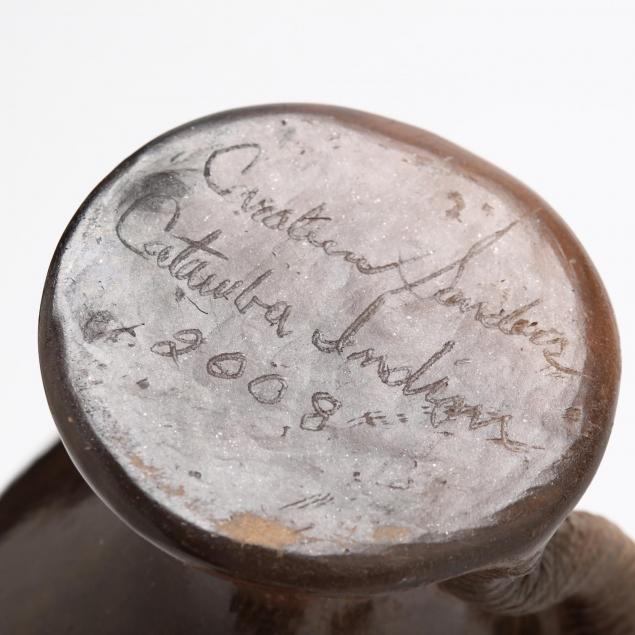 Sanders
Catawba Indians
2008